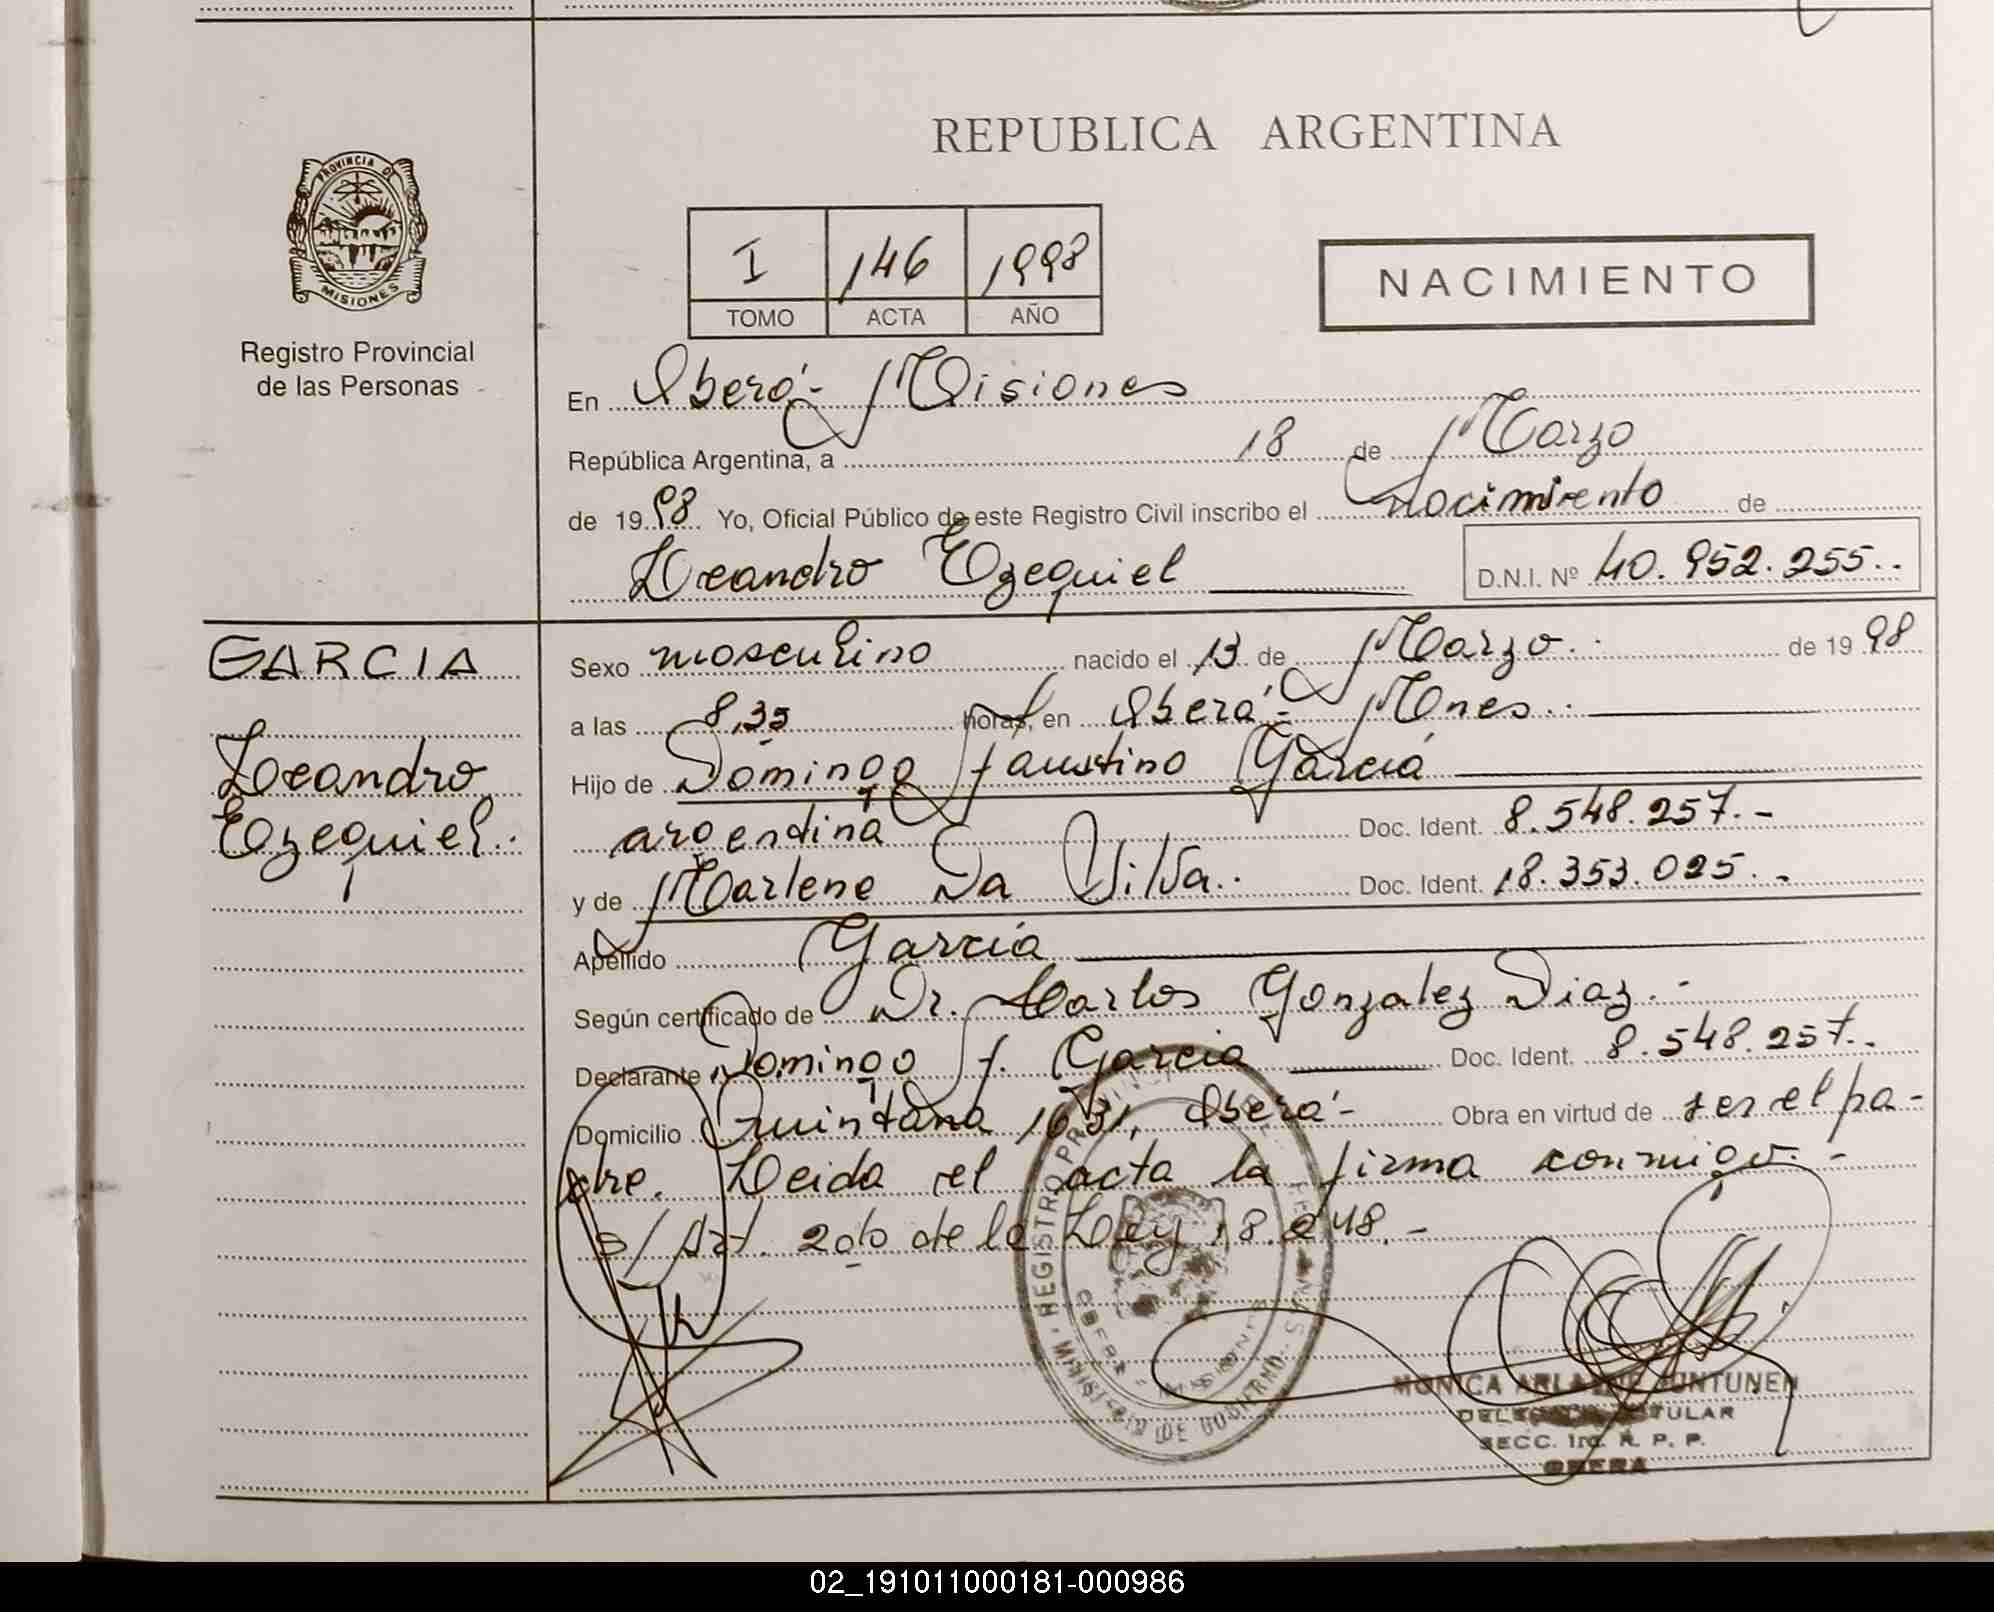 REPUBLICA ARGENTINA
PROVINCIA DE
MISIONES
Registro Provincial
de las Personas
I 146 1998
TOMO ACTA AÑO
NACIMIENTO
En Oberá - Misiones
República Argentina, a 18 de Marzo
de 1998 Yo, Oficial Público de este Registro Civil inscribo el nacimiento de
Leandro Ezequiel D.N.I. Nº 40.952.255..
GARCIA
Leandro
Ezequiel.
Sexo masculino nacido el 13 de Marzo. de 1998
a las 8,35 horas, en Oberá - Mnes.
Hijo de Domingo Faustino García
argentina Doc. Ident. 8.548.257.-
y de Marlene Da Silva. Doc. Ident. 18.353.025.-
Apellido García
Según certificado de Dr. Carlos Gonzalez Diaz.-
Declarante Domingo F. Garcia Doc. Ident. 8.548.257..
Domicilio Quintana 1631, Oberá - Obra en virtud de ser el pa-
dre. Leida el acta la firma conmigo.-
s/Art. 2do de la Ley 18.248.-
REGISTRO PROVINCIAL DE LAS PERSONAS
MINISTERIO DE GOBIERNO
OBERA - MISIONES
MONICA JUNTUNEN
TITULAR
SECC. 1ra. R. P. P.
OBERA
02_191011000181-000986